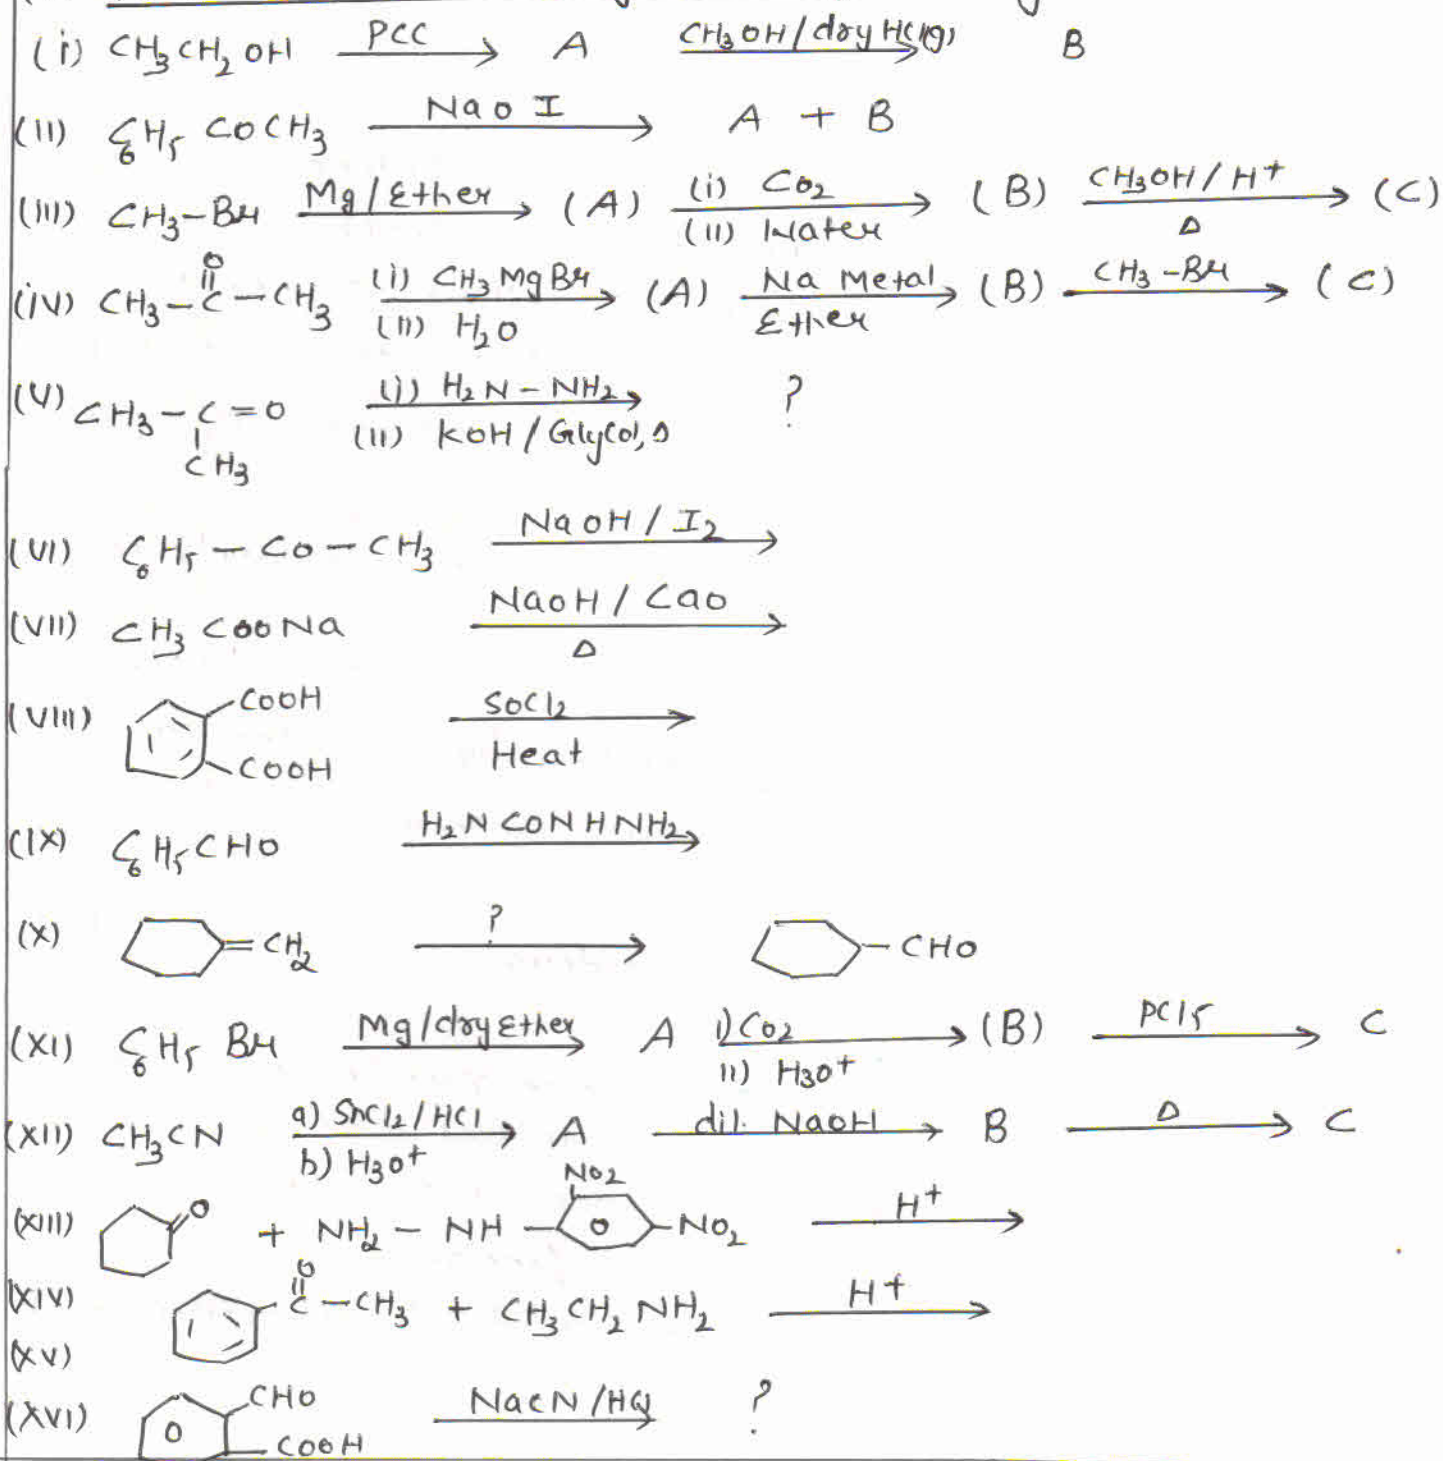 (i) CH₃CH₂OH PCC → A CH₃OH/dry HCl(g) → B
(ii) C₆H₅COCH₃ NaOI → A + B
(iii) CH₃-Br Mg/Ether → (A) (i) CO₂ (ii) Water → (B) CH₃OH/H+ Δ → (C)
(iv) CH₃-C(=O)-CH₃ (i) CH₃MgBr (ii) H₂O → (A) Na Metal Ether → (B) CH₃-Br → (C)
(V) CH₃-C(CH₃)=O (i) H₂N-NH₂ (ii) KOH/Glycol, Δ → ?
(VI) C₆H₅-CO-CH₃ NaOH/I₂ →
(VII) CH₃COONa NaOH/CaO Δ →
(VIII) COOH COOH SOCl₂ Heat →
(IX) C₆H₅CHO H₂NCONHNH₂ →
(X) =CH₂ ? → -CHO
(XI) C₆H₅Br Mg/dry Ether → A i) CO₂ ii) H₃O+ → (B) PCl₅ → C
(XII) CH₃CN a) SnCl₂/HCl b) H₃O+ → A dil. NaOH → B Δ → C
(XIII) O + NH₂-NH- NO₂ -NO₂ H+ →
(XIV) C(=O)-CH₃ + CH₃CH₂NH₂ H+ →
(XV)
(XVI) CHO COOH NaCN/HCl → ?